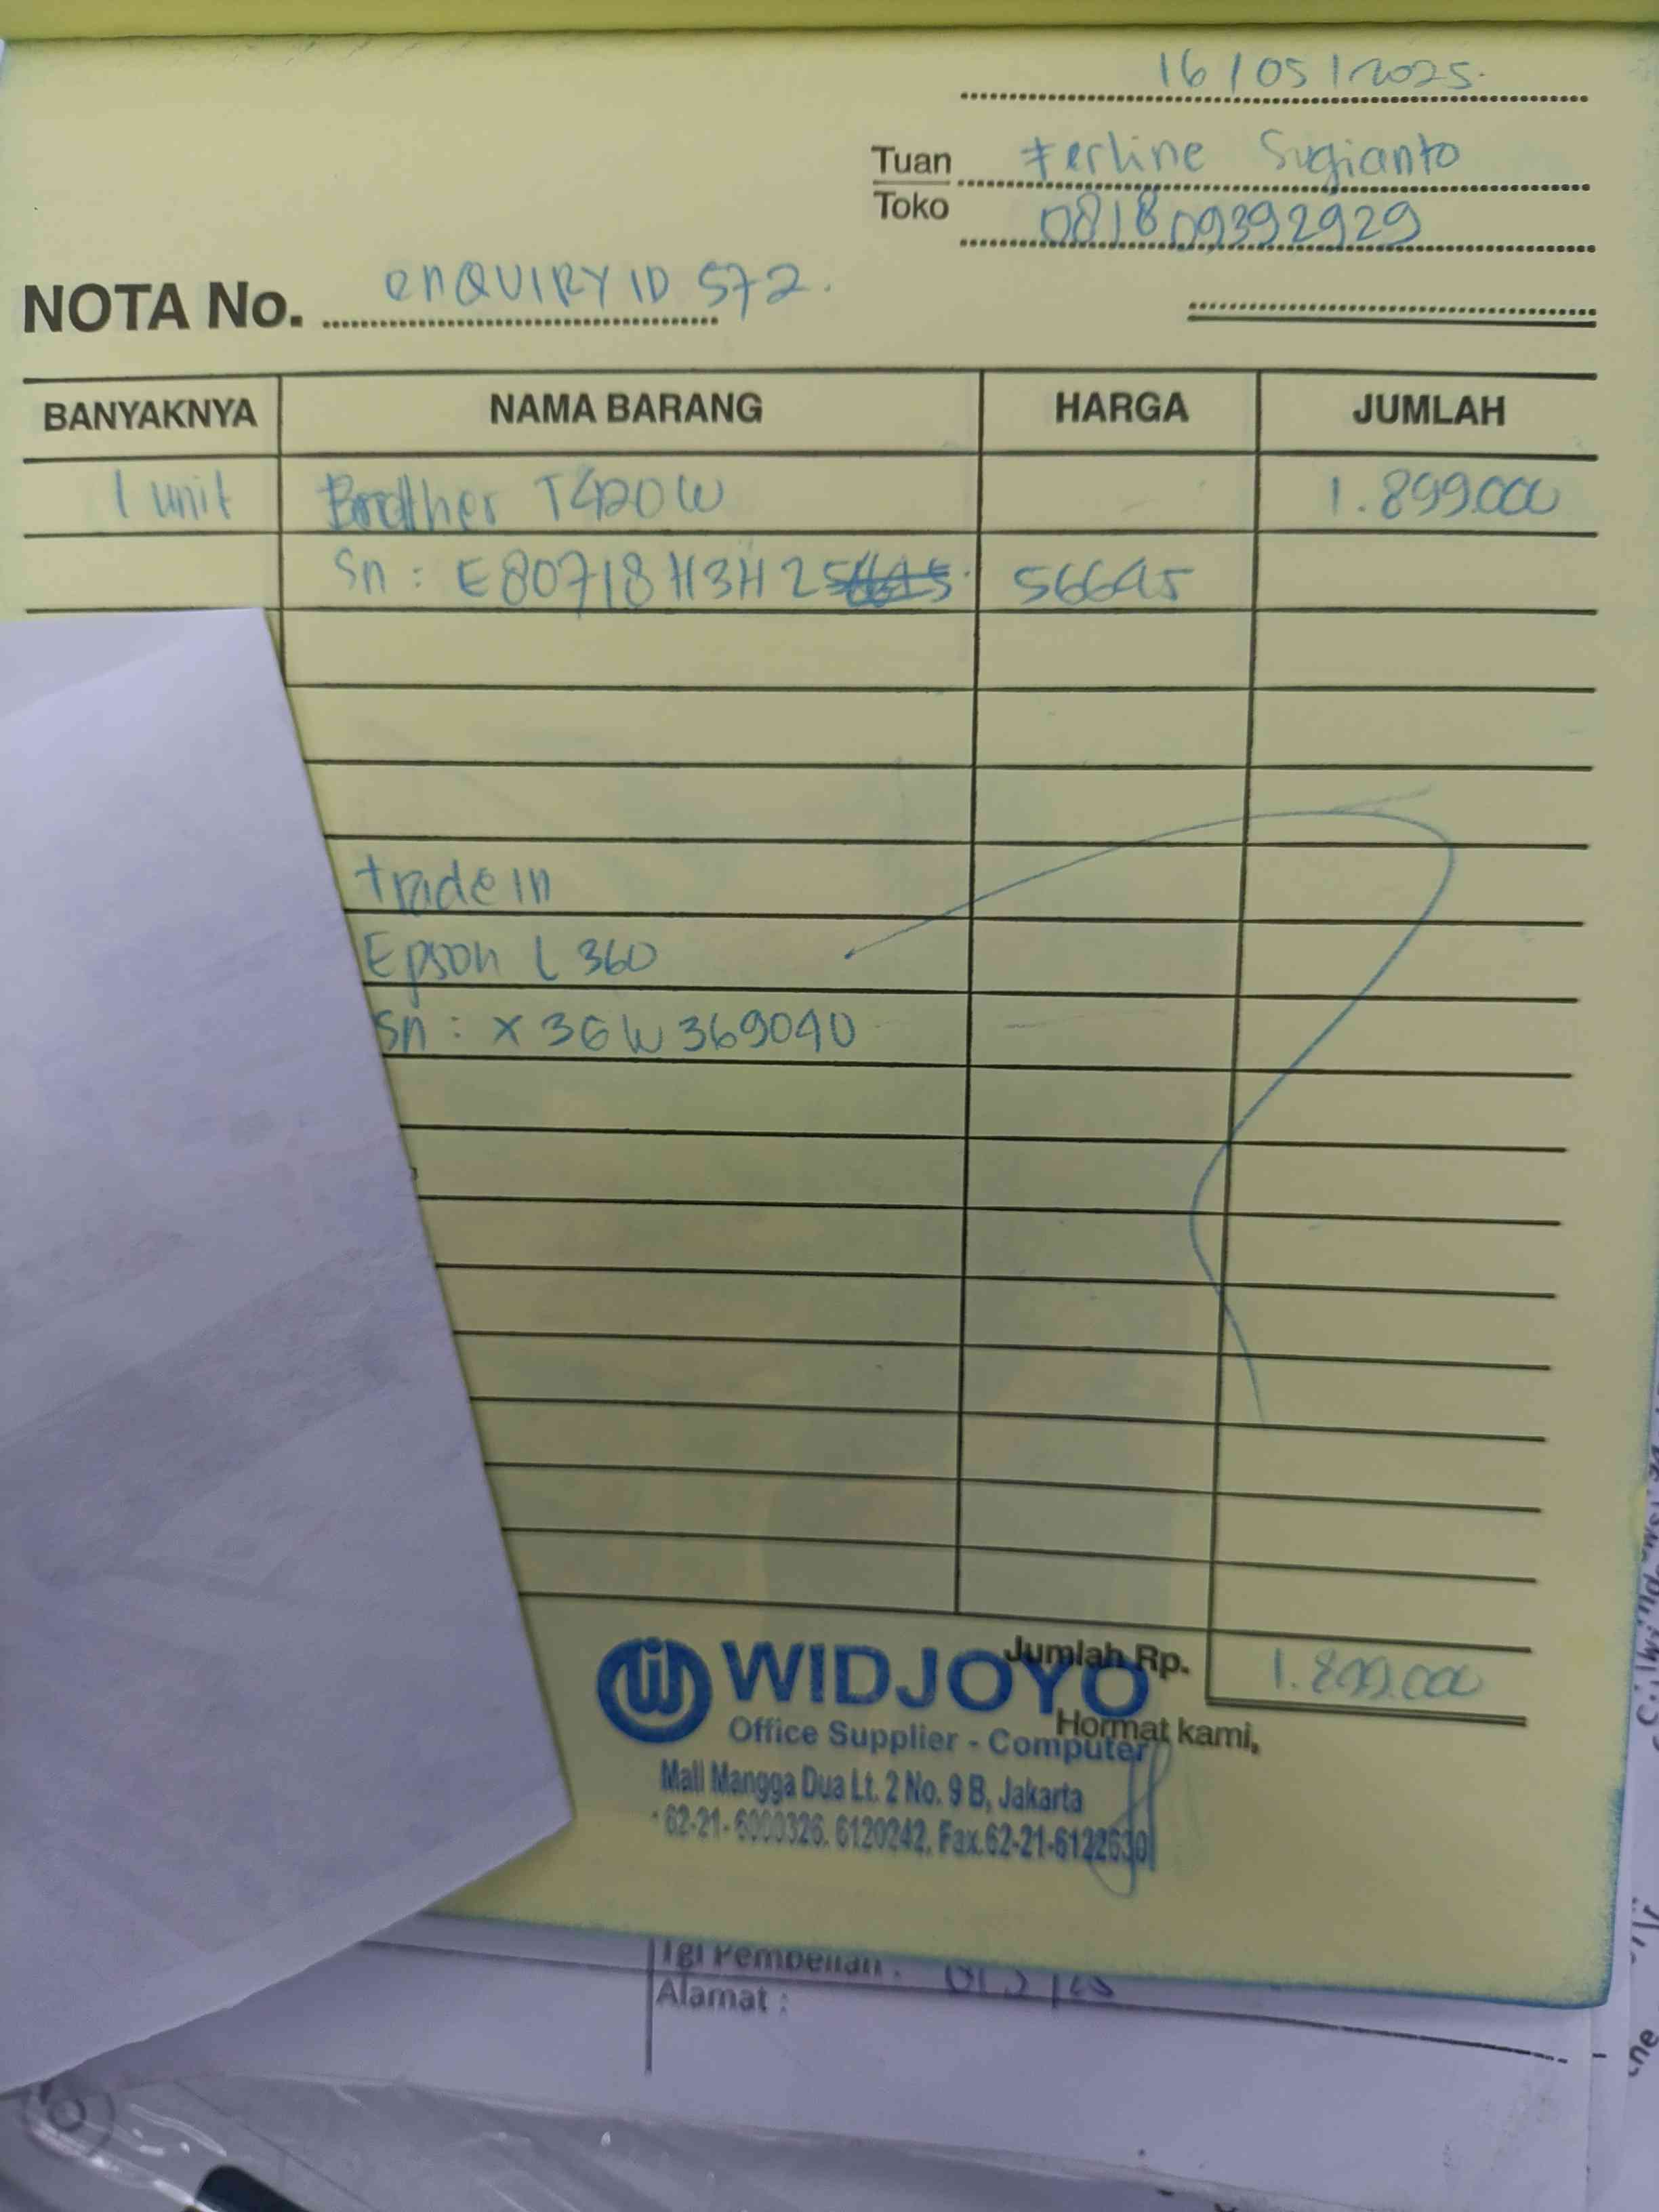 16/05/2025.
Tuan Ferline Sugianto
Toko 081809392929
NOTA No. enQUIRY ID 572.
BANYAKNYA NAMA BARANG HARGA JUMLAH
1 unit Brother T420W 1.899.000
Sn : E80718H3H2 56645
trade in
Epson L 360
Sn : X3GW369040
Jumlah Rp. 1.899.000
WIDJOYO
Hormat kami,
Office Supplier - Computer
Mall Mangga Dua Lt. 2 No. 9 B, Jakarta
62-21- 6000326, 6120242, Fax.62-21-6122630
Tgl Pembelian :
Alamat :